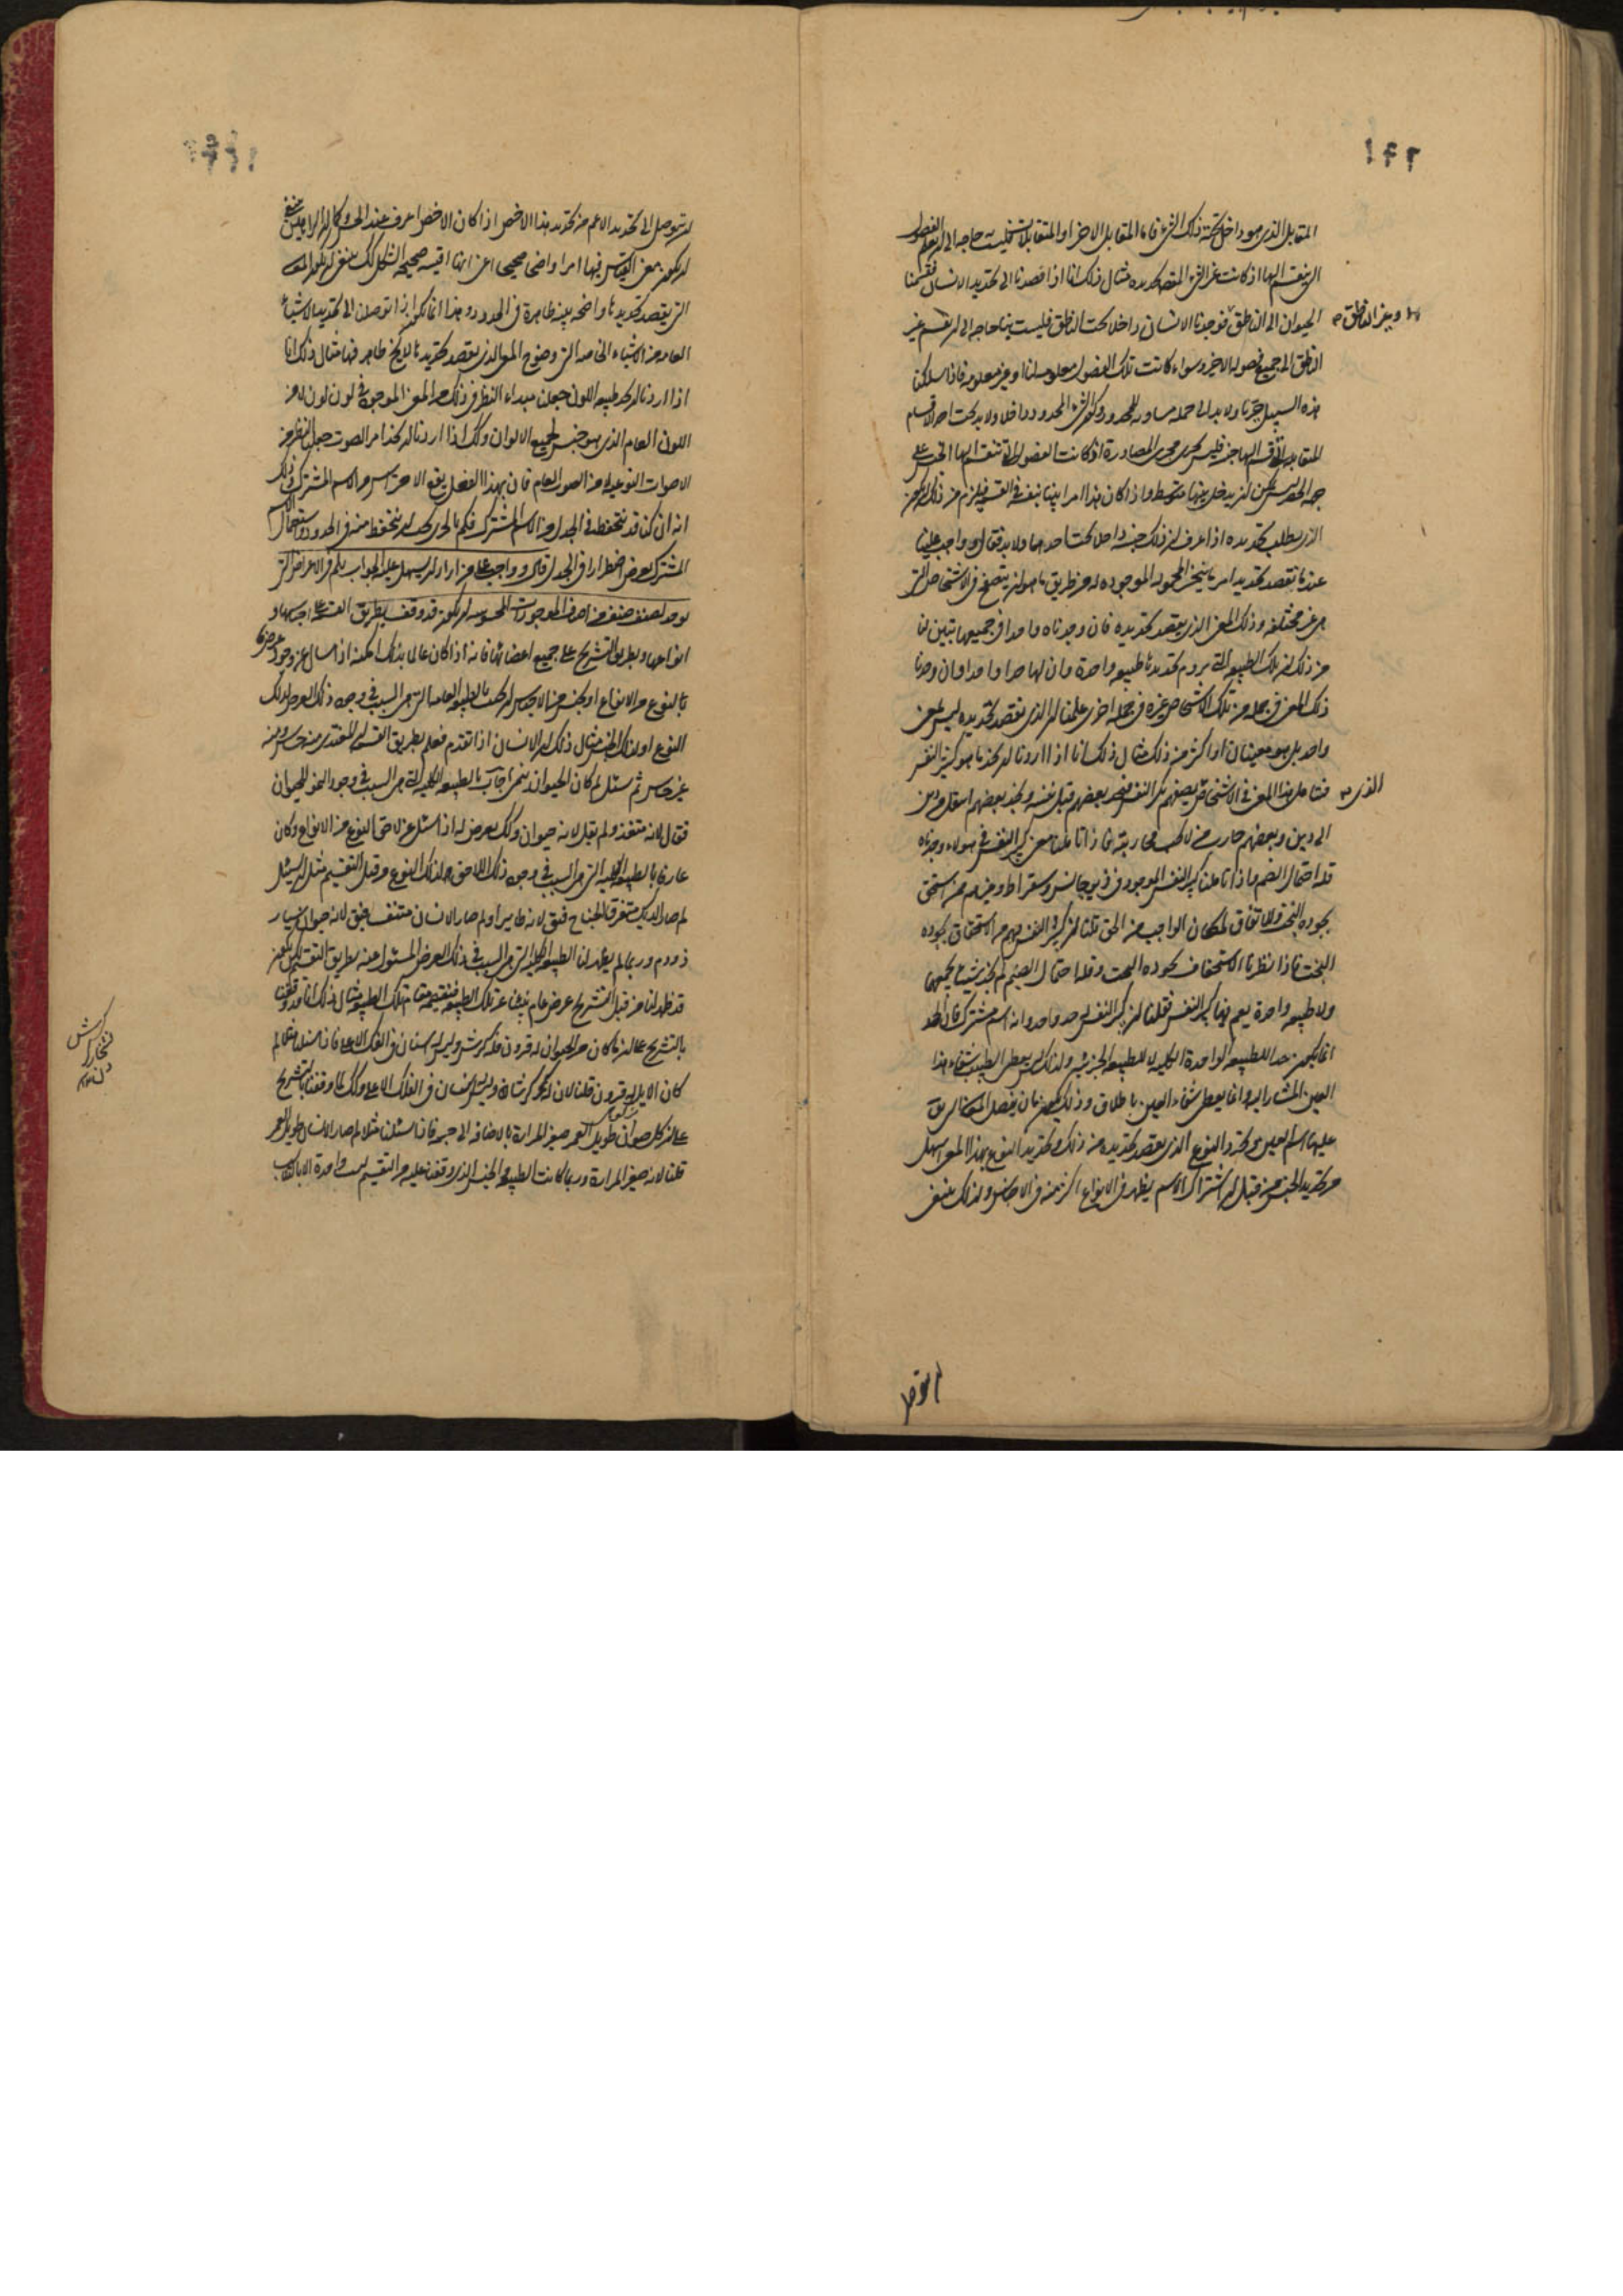 ١٤٢
المقابل الذى هو داخل تحته ذلك الشئ فاما المقابل الاخر او المتقابلات فليست حاجه الى ان نعلم الفصول
التى ينقسم اليها اذ كانت غير الشئ المقصود تحديده مثال ذلك انا اذا قصدنا الى تحديد الانسان فقسمنا
الحيوان الى الناطق فوجدنا الانسان داخلا تحت الناطق فليست بنا حاجه الى ان نقسم غير
وغير الناطق
الناطق الى جميع فصوله الاخر وسواء كانت تلك الفصول معلومه لنا او غير معلومه فاذا سلكنا
هذه السبيل جرتنا ولا بد الى جمله مساويه للمحدود ويكون الشئ المحدود داخلا ولا بد تحت احد الاقسام
المتقابله التى قسم اليها جنسه فليس يجرى مجرى المصادرة اذ كانت الفصول التى تنقسم اليها الجنس على
جهة الحصر ليس يمكن ان يدخل بينها متوسط واذ كان هذا امرا بينا بنفسه فى القسمه فيلزم من ذلك ان يكون
الذى يطلب تحديده اذا عرف ان ذلك جنسه داخلا تحت احدهما ولا بد فقال وواجب علينا
عندما نقصد تحديد امر ما ان ننظر المحموله الموجوده له من طريق ما هو ان يتصفح فى الاشخاص التى
هى غير مختلفه وذلك المعنى الذى يقصد تحديده فان وجدناه واحدا فى جميعها تبين لنا
من ذلك ان تلك الطبيعه التى نروم تحديدها طبيعه واحدة وان لها حدا واحدا وان وجدنا
ذلك المعنى فى جمله من تلك الاشخاص غيره فى جمله اخرى علمنا ان الذى نقصد تحديده ليس بمعنى
واحد بل هو معنيان او اكثر من ذلك مثال ذلك انا اذا اردنا ان نحد ما هو كبير النفس
فنتامل هذا المعنى فى الاشخاص الذى نصفهم بكبر النفس فنجد بعضهم قتل نفسه ونجد بعضهم انتقل من دين
الذى
الى دين وبعضهم حارب
قلة احتمال الضيم واذا تاملنا كبر النفس الموجود فى ذيوجانس وسقراط وغيرهم ممن استحق
بجوده البخت والاتفاق لمكان الواجب من الحق قلنا ان كبر النفس فيهم هو الاستخفاف بجوده
البخت فاذا نظرنا الاستخفاف بجوده البخت وقلة احتمال الضيم لم نجد شيئا يجمعهما
ولا طبيعه واحدة يعم بها كبر النفس فقلنا ان كبر النفس ليس حد واحد وانه اسم مشترك فان الحد
انما يكون حدا للطبيعه الواحدة الكليه لا للطبيعه الجزئيه ولذلك ليس يعطى الطبيب شفاء هذا
العين المشار اليه وانما يعطى شفاء العين باطلاق وذلك يكون بان يفصل المعنى الذى يق
عليها اسم العين ويحد النوع الذى يقصد تحديده من ذلك وتحديد النوع بهذا المعنى اسهل
من تحديد الجنس من قبل ان اشتراك الاسم يظهر فى الانواع اكثر منه فى الاجناس ولذلك ينبغى
ان نتوصل الى تحديد الاعم من تحديد هذا الاخص اذا كان الاخص اعرف عند الحس وكما ان البراهين ينبغى
ان يكون معنى القياس فيها امرا واضحا صحيحا اعنى انها اقيسه صحيحه الشكل كك ينبغى ان يكون المعانى
التى يقصد تحديدها واضحه بينه ظاهرة فى الحدود وهذا انما يكون اذا توصلنا الى تحديد الاشياء
العامه من الاشياء الخاصه التى وضوح المعنى الذى نقصد تحديدها للحس ظاهر فيها مثال ذلك انا
اذا اردنا ان نحد طبيعه اللون جعلنا مبداء النظر فى ذلك هو المعنى الموجود فى لون لون لا من
اللون العام الذى هو جنس لجميع الالوان وكك اذا اردنا ان نحد امر الصوت جعلنا النظر من
الاصوات النوعيه لا من الصوت العام فان بهذا الفصل يقع الاحتراس من الاسم المشترك وذلك
انه ان كنا قد نتحفظ فى الجدل من الاسم المشترك فكم بالحرى يجب ان نتحفظ منه فى الحدود واستعمال الاسم
المشترك يعرض اضطرارا فى الجدل قال وواجب على من اراد ان يسهل عليه الجواب بلم فى الاعراض التى
توجد لصنف صنف من اصناف الموجودات المحسوسه ان يكون قد وقف بطريق القسمه على اجناسها و
انواعها وبطريق التشريح على جميع اعضائها فانه اذا كان عالما بذلك امكنه اذا سال عن وجود عرض ما
ما لنوع من الانواع او لجنس من الاجناس ان يجيب بالطبيعه العامه التى هى السبب فى وجود ذلك العرض لذلك
النوع او لذلك الجنس مثال ذلك ان الانسان اذا تقدم فعلم بطريق القسمه ان المغتذى منه حساس ومنه
غير حساس ثم سئل لم كان الحيوان ينمى اجاب بالطبيعه الكليه التى هى السبب فى وجود النمو للحيوان
فقال لانه متغذ ولم يقل لانه حيوان وكك يعرض له اذا سئل عن لاحق لنوع من الانواع وكان
عارفا بالطبيعه الكليه التى هى السبب فى وجود ذلك اللاحق لذلك النوع من قبل التقسيم مثل ان يسئل
لم صار الديك متفرق الجناح فيق لانه طير او لم صار الانسان متنفسا فيق لانه حيوان سيار
ذو دم وربما لم يظهر لنا الطبيعه الكليه التى هى السبب فى ذلك العرض المسئول عنه بطريق التقسيم لكن يكون
قد ظهر لنا من قبل التشريح عرض عام نيابة عن تلك الطبيعه فنقيمه مقام تلك الطبيعه مثال ذلك انا قد وقفنا
بالتشريح على ان ما كان من الحيوان له قرون فله كرش وليس له اسنان فى الفك الاعلى فاذا سئلنا مثلا لم
كان الايل له قرون قلنا لان له كرشا وليس له اسنان فى الفك الاعلى وكك لما وقفنا بالتشريح
على ان كل حيوان طويل العمر صغير المرارة بالاضافه الى جسمه فاذا سئلنا مثلا لم صار الانسان طويل العمر
قلنا لانه صغير المرارة وربما كانت الطبيعه والجنس الذى وقفنا عليه من التقسيم ليست واحدة الا بالتناسب